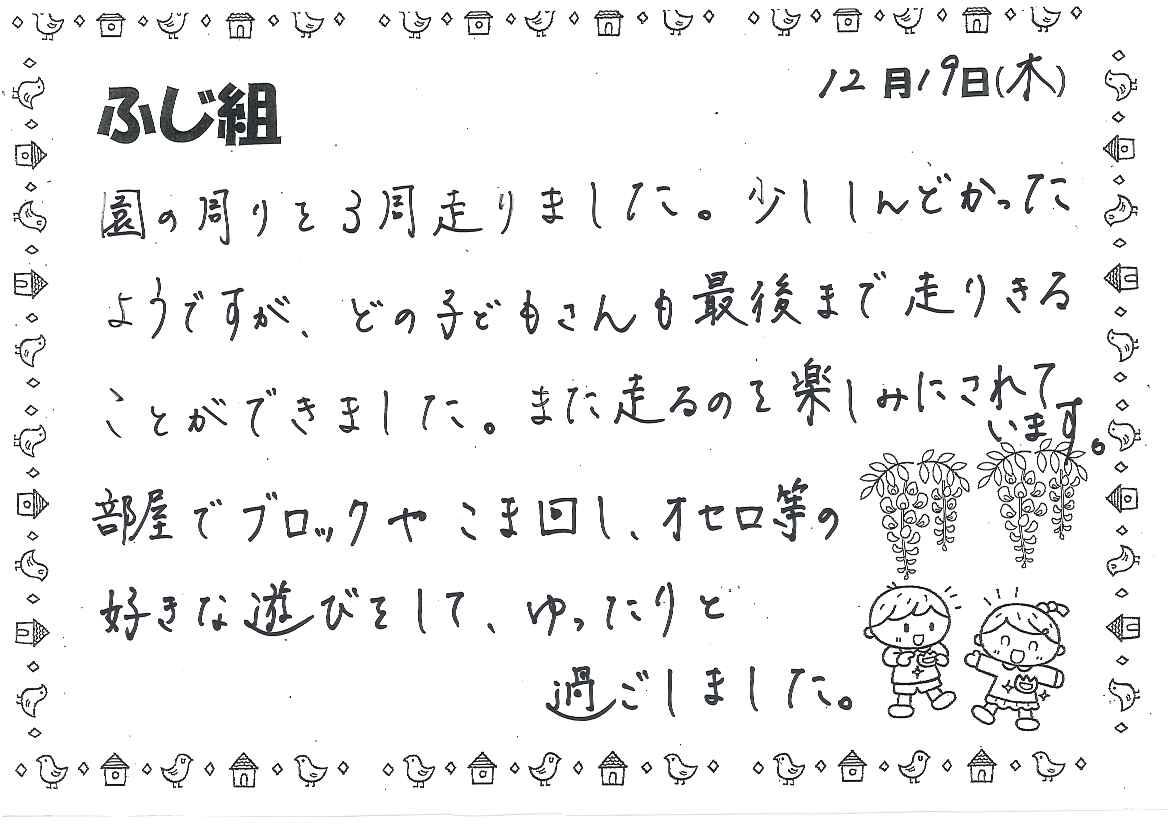 12月19日(木)
ふじ組
園の周りを3周走りました。少ししんどかった
ようですが、どの子どもさんも最後まで走りきる
ことができました。また走るのを楽しみにされて
います。
部屋でブロックやこま回し、オセロ等の
好きな遊びをして、ゆったりと
過ごしました。